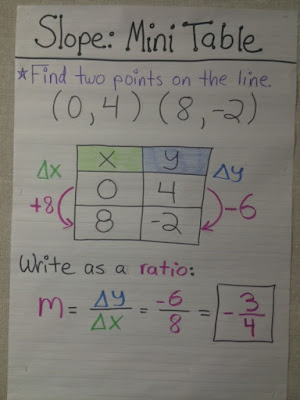 Slope: Mini Table
*Find two points on the line.
(0,4) (8,-2)
Δx x y Δy
+8 0 4 -6
8 -2
Write as a ratio:
m = Δy/Δx = -6/8 = -3/4